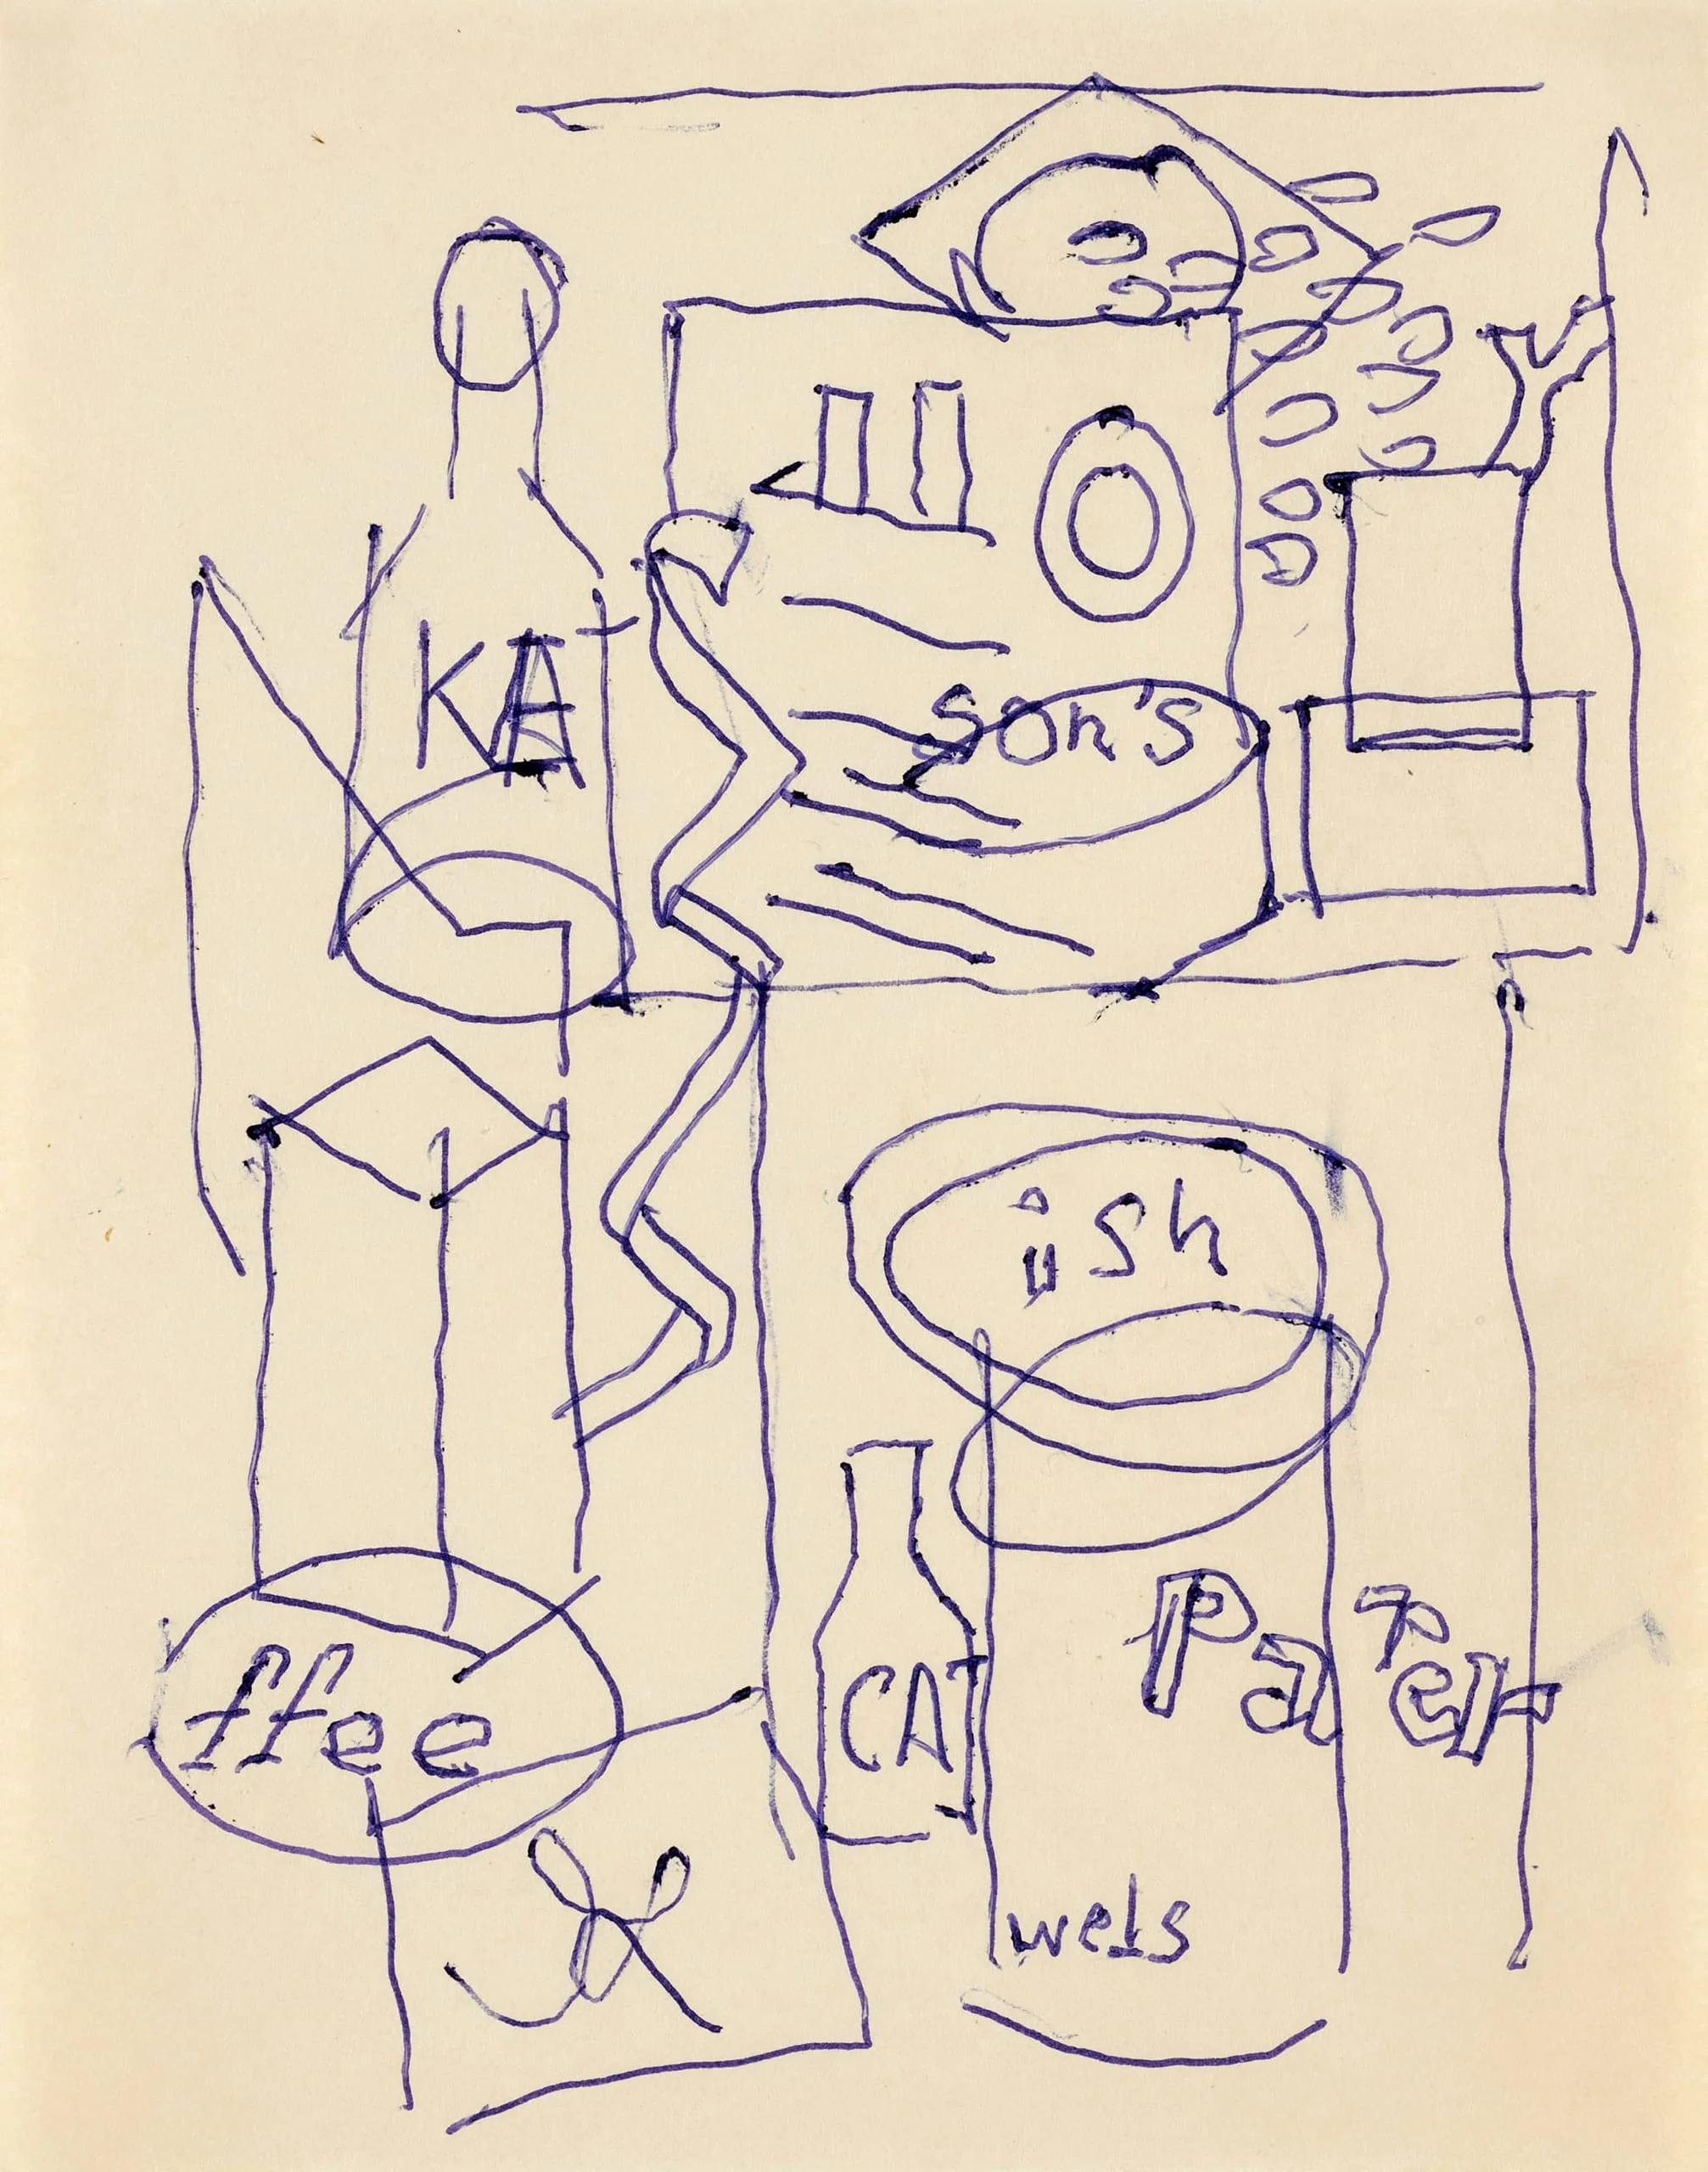 KA
son's
ish
CAT
Paper
ffee
wels